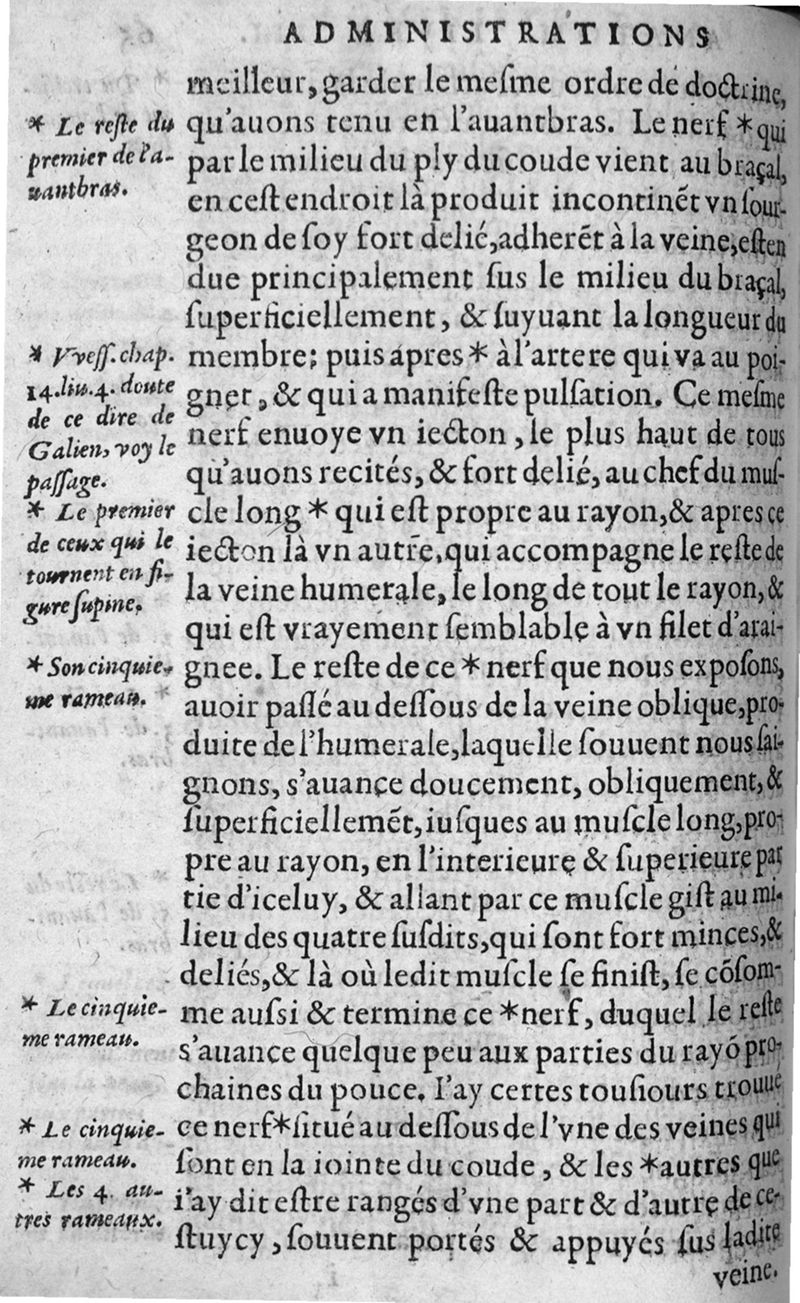 ADMINISTRATIONS
meilleur, garder le meſme ordre de doctrine,
* Le reſte du premier de l'a-
uantbras.
qu'auons tenu en l'auantbras. Le nerf * qui
par le milieu du ply du coude vient au braçal,
en ceſt endroit là produit incontinẽt vn ſour-
geon de ſoy fort delié, adherẽt à la veine, eſten
due principalement ſus le milieu du braçal,
ſuperficiellement, & ſuyuant la longueur du
* Vveſſ. chap.
14. liu. 4. doute
de ce dire de
Galien, voy le
paſſage.
membre: puis apres * à l'artere qui va au poi-
gnet, & qui a manifeſte pulſation. Ce meſme
nerf enuoye vn iecton, le plus haut de tous
qu'auons recités, & fort delié, au chef du muſ-
* Le premier
de ceux qui le
tournent en fi-
gure ſupine.
cle long * qui eſt propre au rayon, & apres ce
iecton là vn autre, qui accompagne le reſte de
la veine humerale, le long de tout le rayon, &
qui eſt vrayement ſemblable à vn filet d'arai-
* Son cinquie-
me rameau.
gnee. Le reſte de ce * nerf que nous expoſons,
auoir paſſé au deſſous de la veine oblique, pro-
duite de l'humerale, laquelle ſouuent nous ſai-
gnons, s'auance doucement, obliquement, &
ſuperficiellemẽt, iuſques au muſcle long, pro-
pre au rayon, en l'interieure & ſuperieure par
tie d'iceluy, & allant par ce muſcle giſt au mi-
lieu des quatre ſuſdits, qui ſont fort minces, &
deliés, & là où ledit muſcle ſe finiſt, ſe cõſom-
* Le cinquie-
me rameau.
me auſsi & termine ce * nerf, duquel le reſte
s'auance quelque peu aux parties du rayõ pro-
chaines du pouce. I'ay certes touſiours trouué
* Le cinquie-
me rameau.
ce nerf * ſitué au deſſous de l'vne des veines qui
ſont en la iointe du coude, & les * autres que
* Les 4. au-
tres rameaux.
i'ay dit eſtre rangés d'vne part & d'autre de ce-
ſtuycy, ſouuent portés & appuyés ſus ladite
veine.